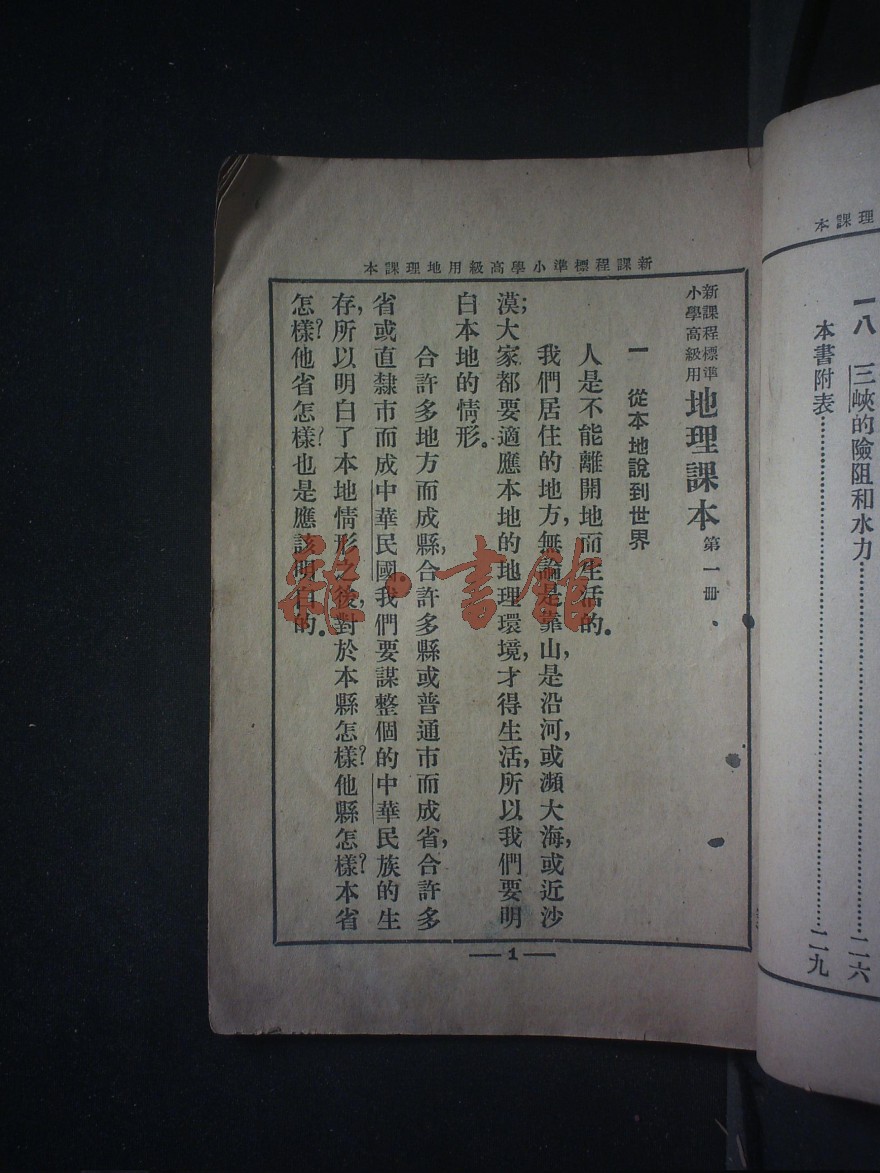 理課本
一八 三峽的險阻和水力……二六
本書附表……二九
新課程標準小學高級用地理課本
新課程標準
小學高級用
地理課本 第一冊
一 從本地說到世界
人是不能離開地而生活的。
我們居住的地方,無論是靠山,是沿河,或瀕大海,或近沙
漠;大家都要適應本地的地理環境,才得生活,所以我們要明
白本地的情形。
合許多地方而成縣,合許多縣或普通市而成省,合許多
省或直隸市而成中華民國我們要謀整個的中華民族的生
存,所以明白了本地情形之後,對於本縣怎樣?他縣怎樣?本省
怎樣?他省怎樣?也是應該明白的。
1
雜·書館